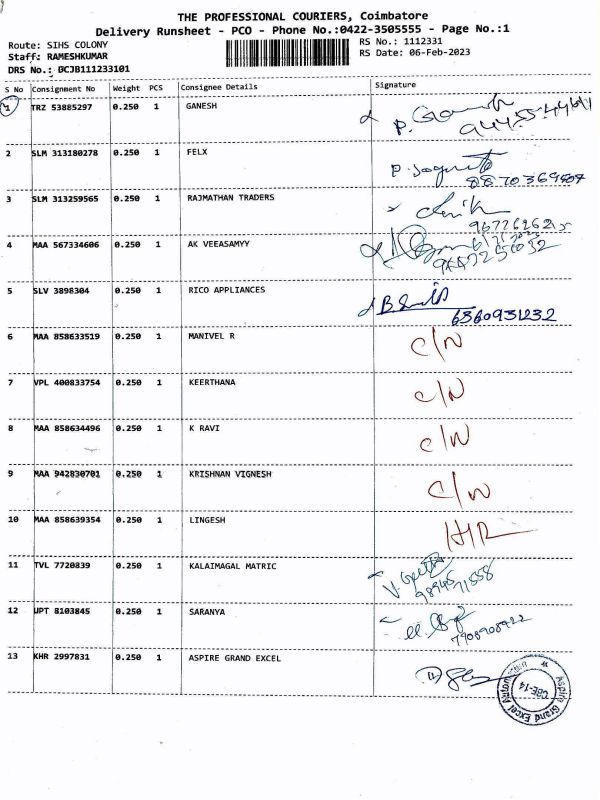 THE PROFESSIONAL COURIERS, Coimbatore
Delivery Runsheet - PCO - Phone No.:0422-3505555 - Page No.:1
Route: SIHS COLONY RS No.: 1112331
Staff: RAMESHKUMAR RS Date: 06-Feb-2023
DRS No.: 0CJB111233101
S No Consignment No Weight PCS Consignee Details Signature
1 TRZ 53885297 0.250 1 GANESH
2 SLM 313180278 0.250 1 FELX
3 SLM 313259565 0.250 1 RAJMATHAN TRADERS
4 MAA 567334606 0.250 1 AK VEEASAMYY
5 SLV 3898304 0.250 1 RICO APPLIANCES
6360931232
6 MAA 858633519 0.250 1 MANIVEL R C/N
7 VPL 400833754 0.250 1 KEERTHANA C/N
8 MAA 858634496 0.250 1 K RAVI C/N
9 MAA 942830701 0.250 1 KRISHNAN VIGNESH C/N
10 MAA 858639354 0.250 1 LINGESH
11 TVL 7720839 0.250 1 KALAIMAGAL MATRIC
12 JPT 8103845 0.250 1 SARANYA
7908908422
13 KHR 2997831 0.250 1 ASPIRE GRAND EXCEL
CBE-14